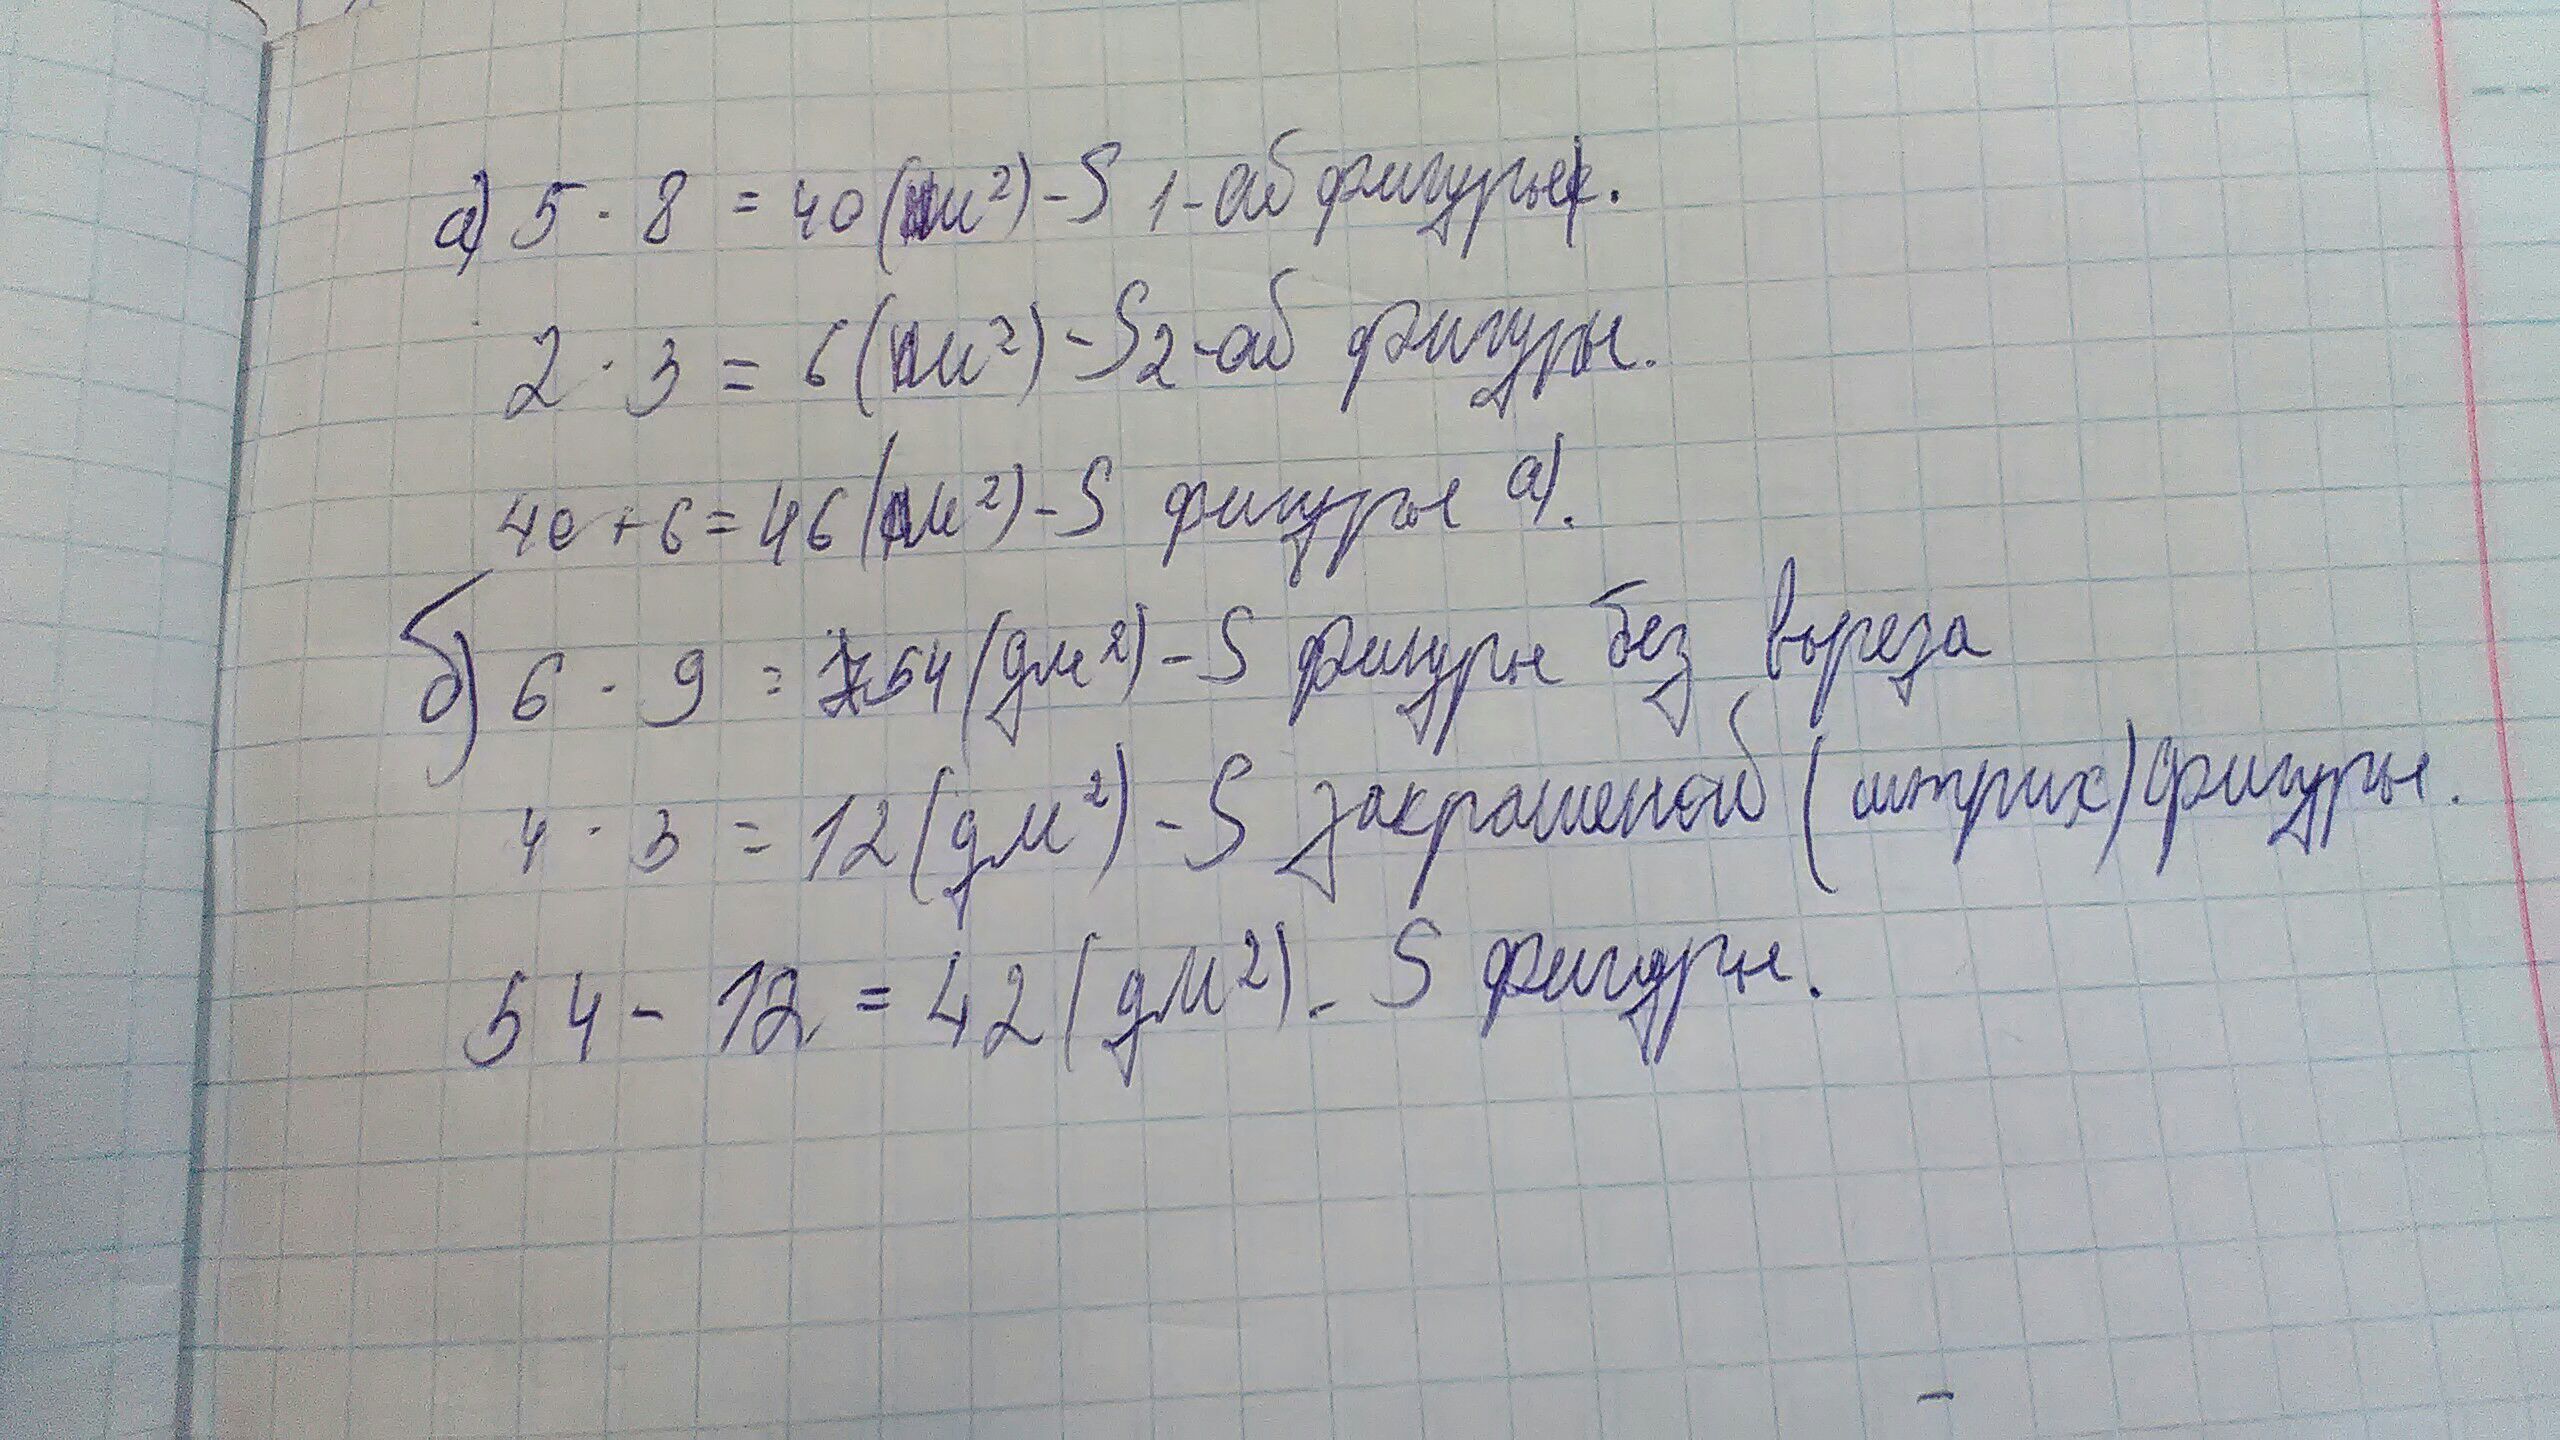 а) 5 · 8 = 40 (м²) - S 1-ой фигуры.
2 · 3 = 6 (м²) - S 2-ой фигуры.
40 + 6 = 46 (м²) - S фигуры а).
б) 6 · 9 = 54 (дм²) - S фигуры без выреза
4 · 3 = 12 (дм²) - S закрашеной (штрих) фигуры.
54 - 12 = 42 (дм²) - S фигуры.